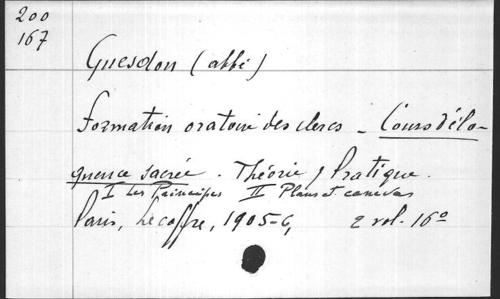 200
167
Guesdon (abbé)
Formation oratoire des clercs - Cours d'élo-
quence sacrée. Théorie / Pratique.
I Les Principes II Plans et canevas
Paris, Lecoffre, 1905-6, 2 vol. 16º